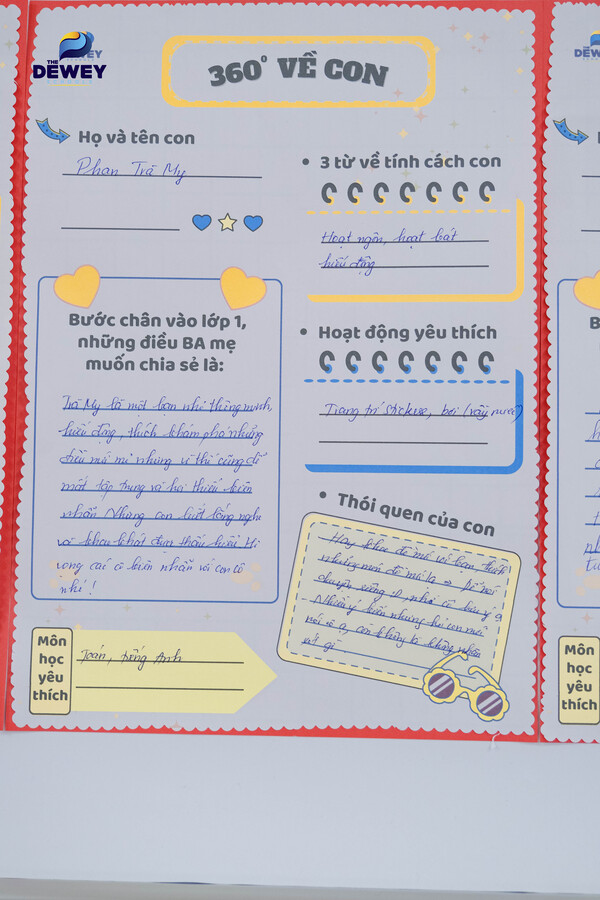 THE
DEWEY
360° VỀ CON
Họ và tên con
Phan Trà My
3 từ về tính cách con
Hoạt ngôn, hoạt bát
hiếu động
Bước chân vào lớp 1,
những điều BA mẹ
muốn chia sẻ là:
Trà My là một bạn nhỏ thông minh,
hiếu động, thích khám phá những
điều mới mẻ nhưng vì thế cũng dễ
mất tập trung và hơi thiếu kiên
nhẫn Nhưng con biết lắng nghe
và khao khát được thấu hiểu Hi
vọng các cô kiên nhẫn với con cô
nhé!
Hoạt động yêu thích
Trang trí sticker, bơi (vầy nước)
Thói quen của con
Hay khoe đồ mới với bạn, thích
những món đồ mới lạ
chuyện riêng
Nhiều ý kiến nhưng khi con mới
nói con không
gì
Môn
học
yêu
thích
Toán, tiếng Anh
DEWEY
Môn
học
yêu
thích